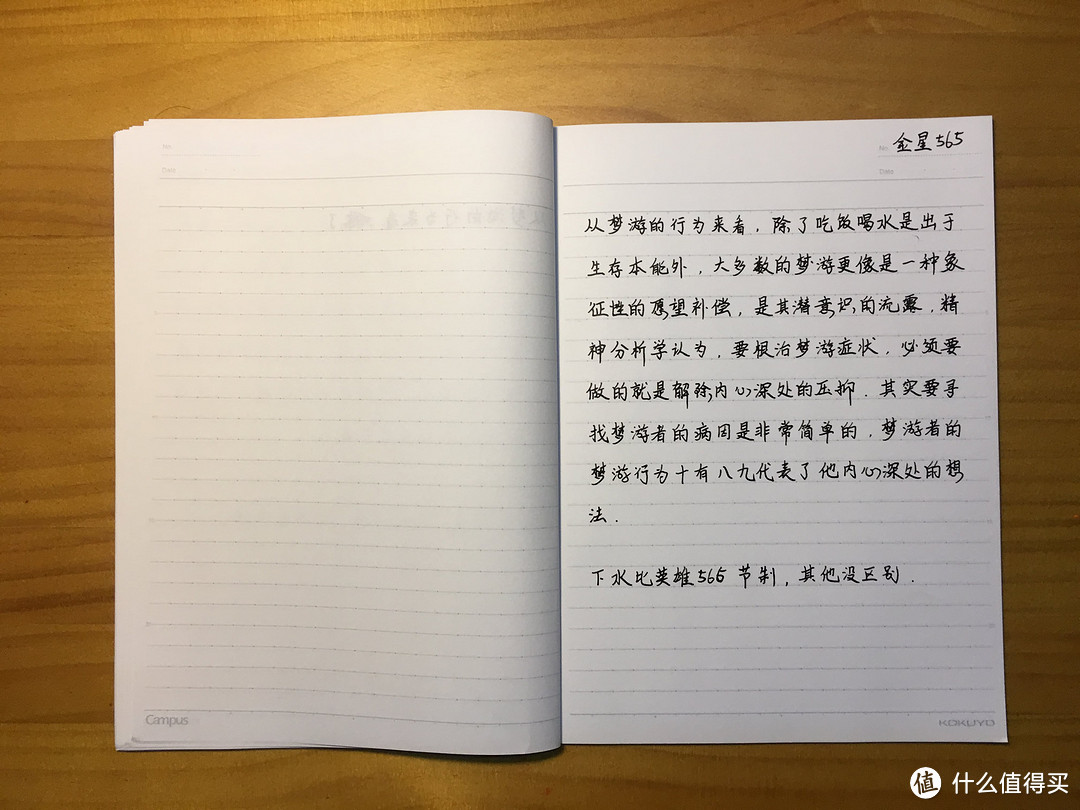 No.
Date
Campus
No. 金星565
Date
从梦游的行为来看，除了吃饭喝水是出于
生存本能外，大多数的梦游更像是一种象
征性的愿望补偿，是其潜意识的流露，精
神分析学认为，要根治梦游症状，必须要
做的就是解除内心深处的压抑．其实要寻
找梦游者的病因是非常简单的，梦游者的
梦游行为十有八九代表了他内心深处的想
法．
下水比英雄565节制，其他没区别．
KOKUYO
值 什么值得买